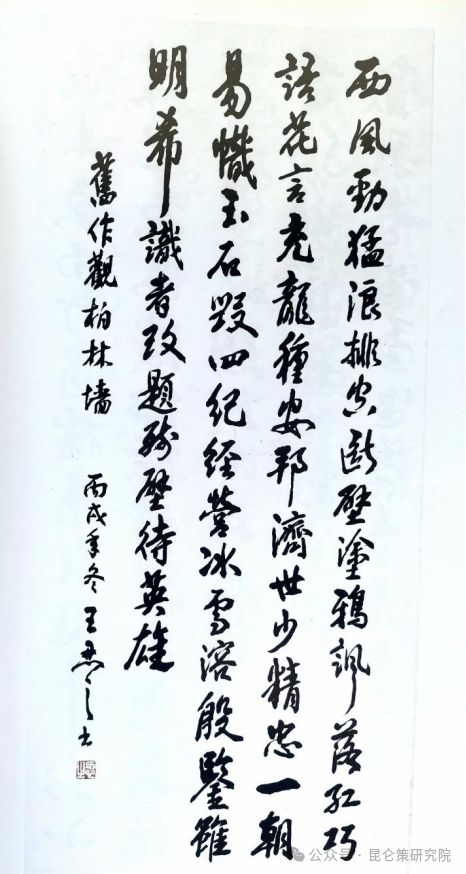 西風勁猛浪排空斷壁塗鴉諷落紅巧
語花言充龍種安邦濟世少精忠一朝
易幟玉石毀四紀經營冰雪溶殷鑒雖
明希識者玫題殘壁待英雄
舊作觀柏林墙
丙戌年冬王忍之書
公众号·昆仑策研究院